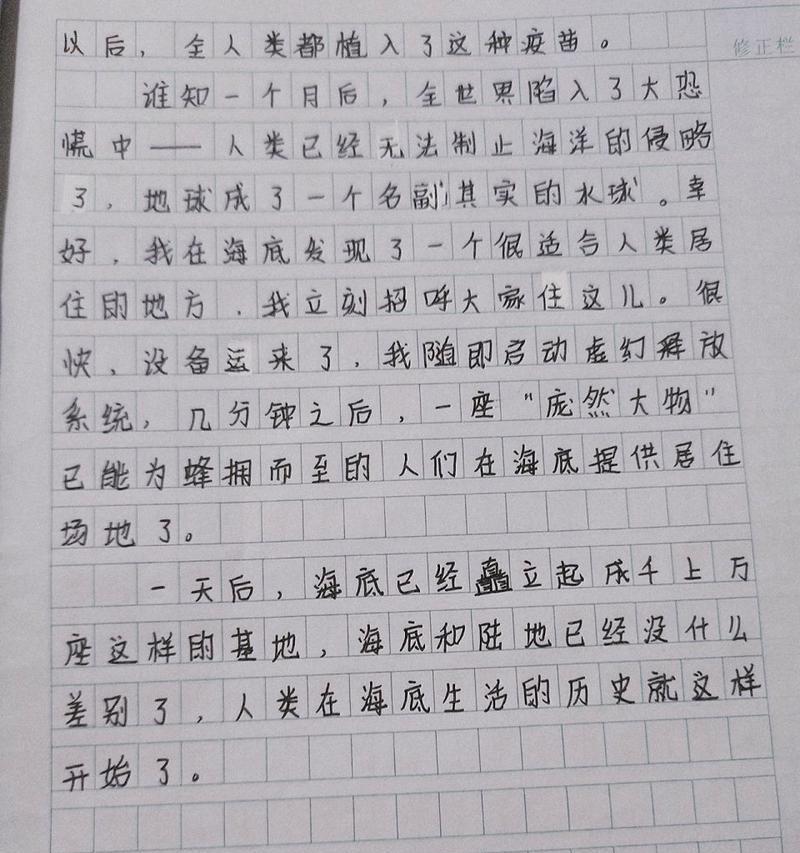 以后，全人类都植入了这种疫苗。
修正栏
谁知一个月后，全世界陷入了大恐
慌中——人类已经无法制止海洋的侵略
了，地球成了一个名副其实的水球。幸
好，我在海底发现了一个很适合人类居
住的地方，我立刻招呼大家住这儿。很
快，设备运来了，我随即启动虚幻释放
系统，几分钟之后，一座“庞然大物”
已能为蜂拥而至的人们在海底提供居住
场地了。
一天后，海底已经矗立起成千上万
座这样的基地，海底和陆地已经没什么
差别了，人类在海底生活的历史就这样
开始了。